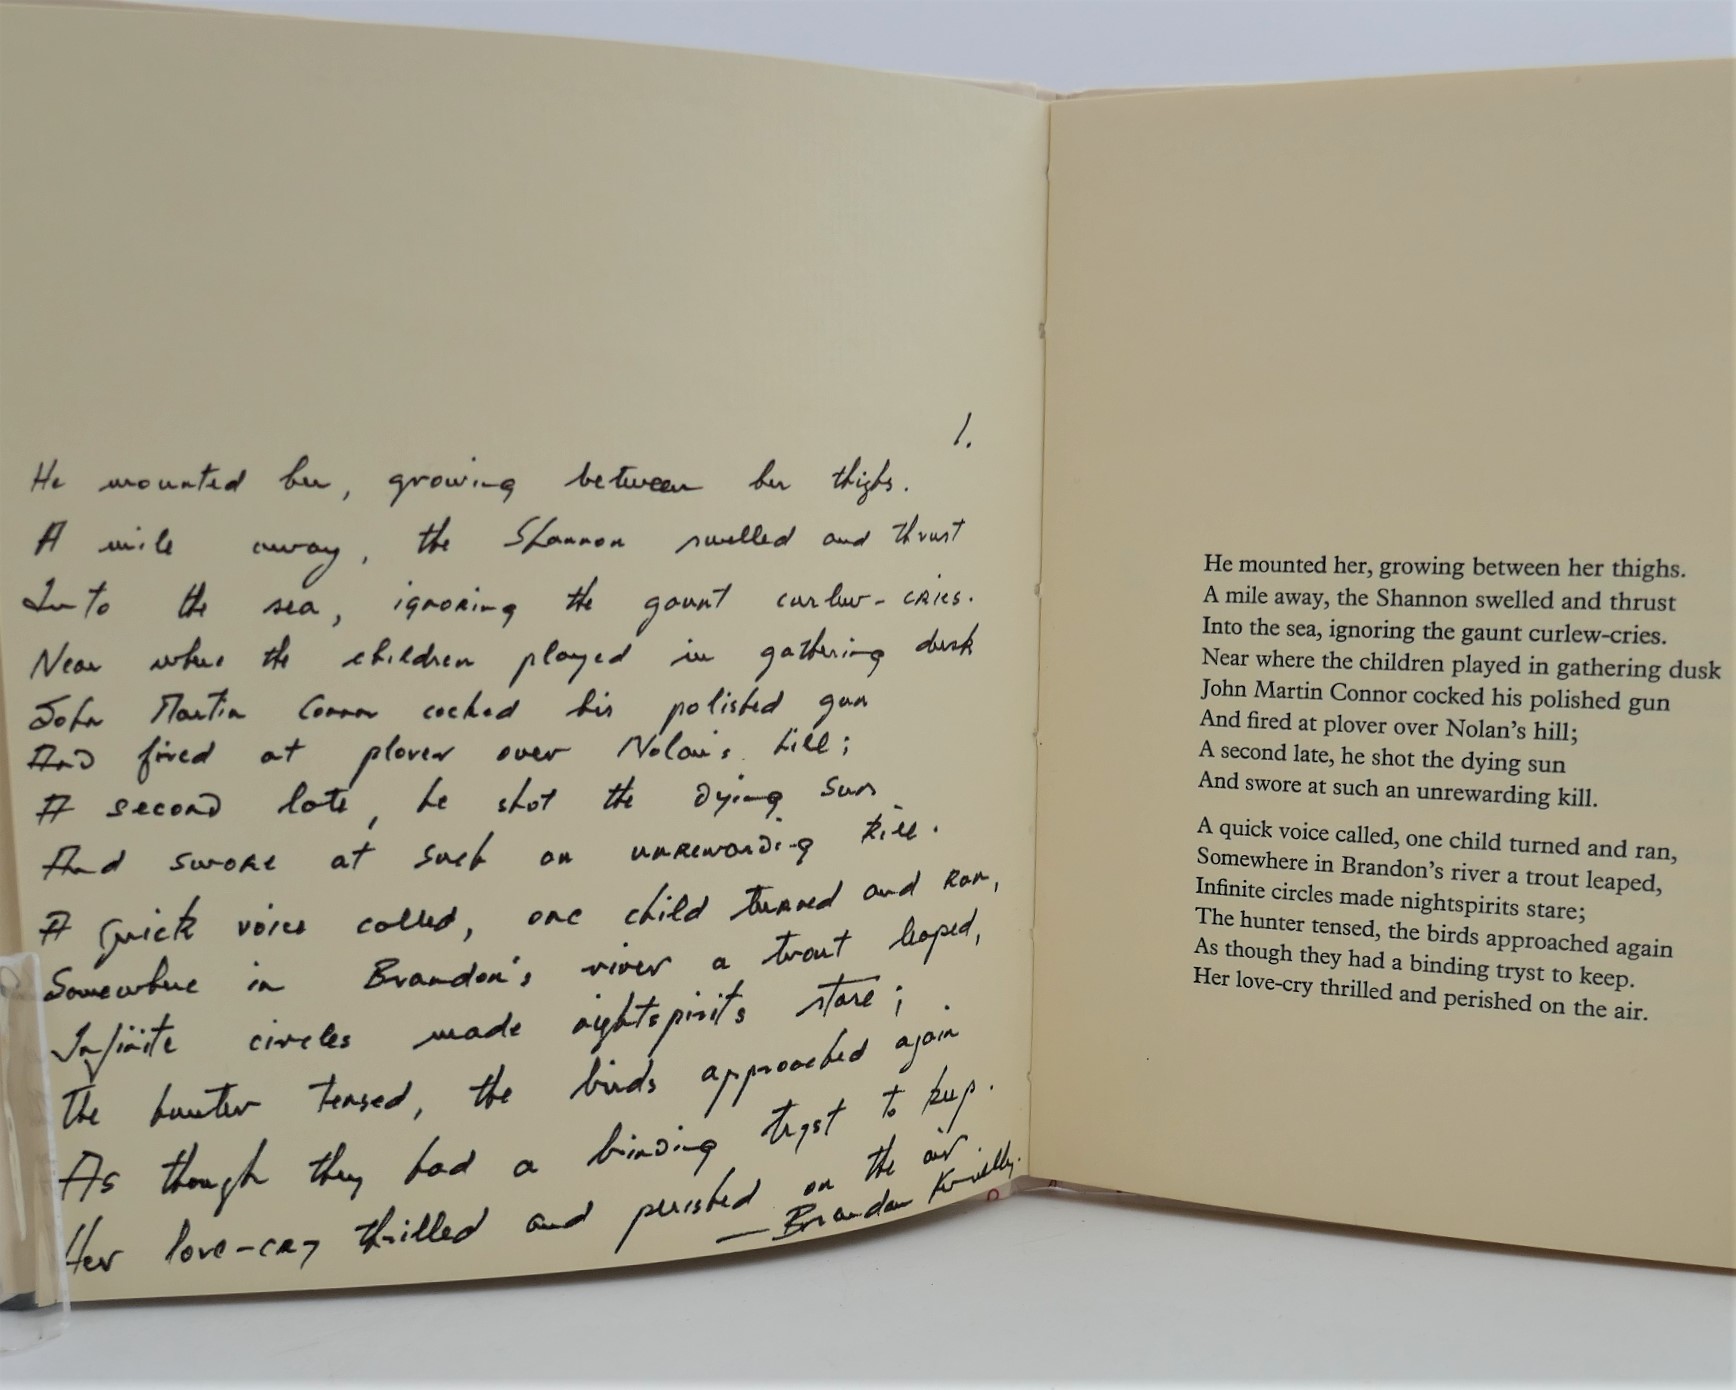 1.
He mounted her, growing between her thighs.
A mile away, the Shannon swelled and thrust
Into the sea, ignoring the gaunt curlew-cries.
Near where the children played in gathering dusk
John Martin Connor cocked his polished gun
And fired at plover over Nolan's hill;
A second late, he shot the dying sun
And swore at such an unrewarding kill.
A quick voice called, one child turned and ran,
Somewhere in Brandon's river a trout leaped,
Infinite circles made nightspirits stare;
The hunter tensed, the birds approached again
As though they had a binding tryst to keep.
Her love-cry thrilled and perished on the air.
— Brendan Kennelly.
He mounted her, growing between her thighs.
A mile away, the Shannon swelled and thrust
Into the sea, ignoring the gaunt curlew-cries.
Near where the children played in gathering dusk
John Martin Connor cocked his polished gun
And fired at plover over Nolan's hill;
A second late, he shot the dying sun
And swore at such an unrewarding kill.
A quick voice called, one child turned and ran,
Somewhere in Brandon's river a trout leaped,
Infinite circles made nightspirits stare;
The hunter tensed, the birds approached again
As though they had a binding tryst to keep.
Her love-cry thrilled and perished on the air.